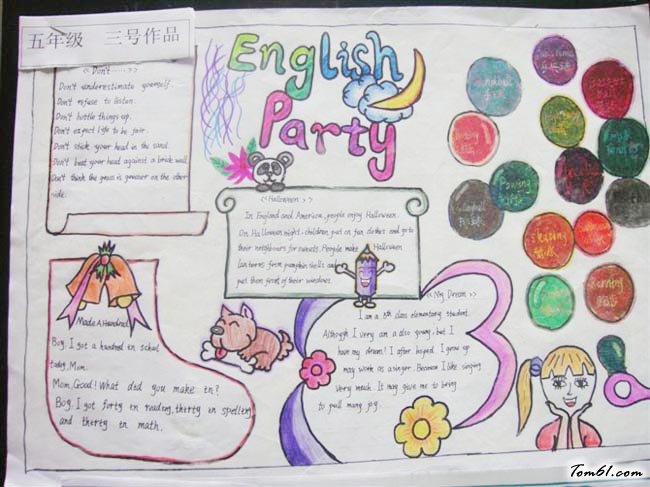 五年级 三号作品
English
Party
<<Don't......>>
Don't underestimate yourself.
Don't refuse to listen.
Don't bottle things up.
Don't expect life to be fair.
Don't stick your head in the sand.
Don't beat your head against a brick wall.
Don't think the grass is greener on the other
side.
<<Halloween>>
In England and America, people enjoy Halloween.
On Halloween night, children put on fun clothes and go to
their neighbours for sweets. People make Halloween
lanterns from pumpkin shells and
put them front of their windows.
Made A Hundred
Boy: I got a hundred in school
today, Mom.
Mom: Good! What did you make in?
Boy: I got forty in reading, thirty in spelling
and thirty in math.
<<My Dream>>
I am a 5th class elementary student.
Although I very am a also young, but I
have my dream! I after hoped I grow up
may work as a singer. Because I like singing
very much. It may give me to bring
to pull many joy.
Tom61.com